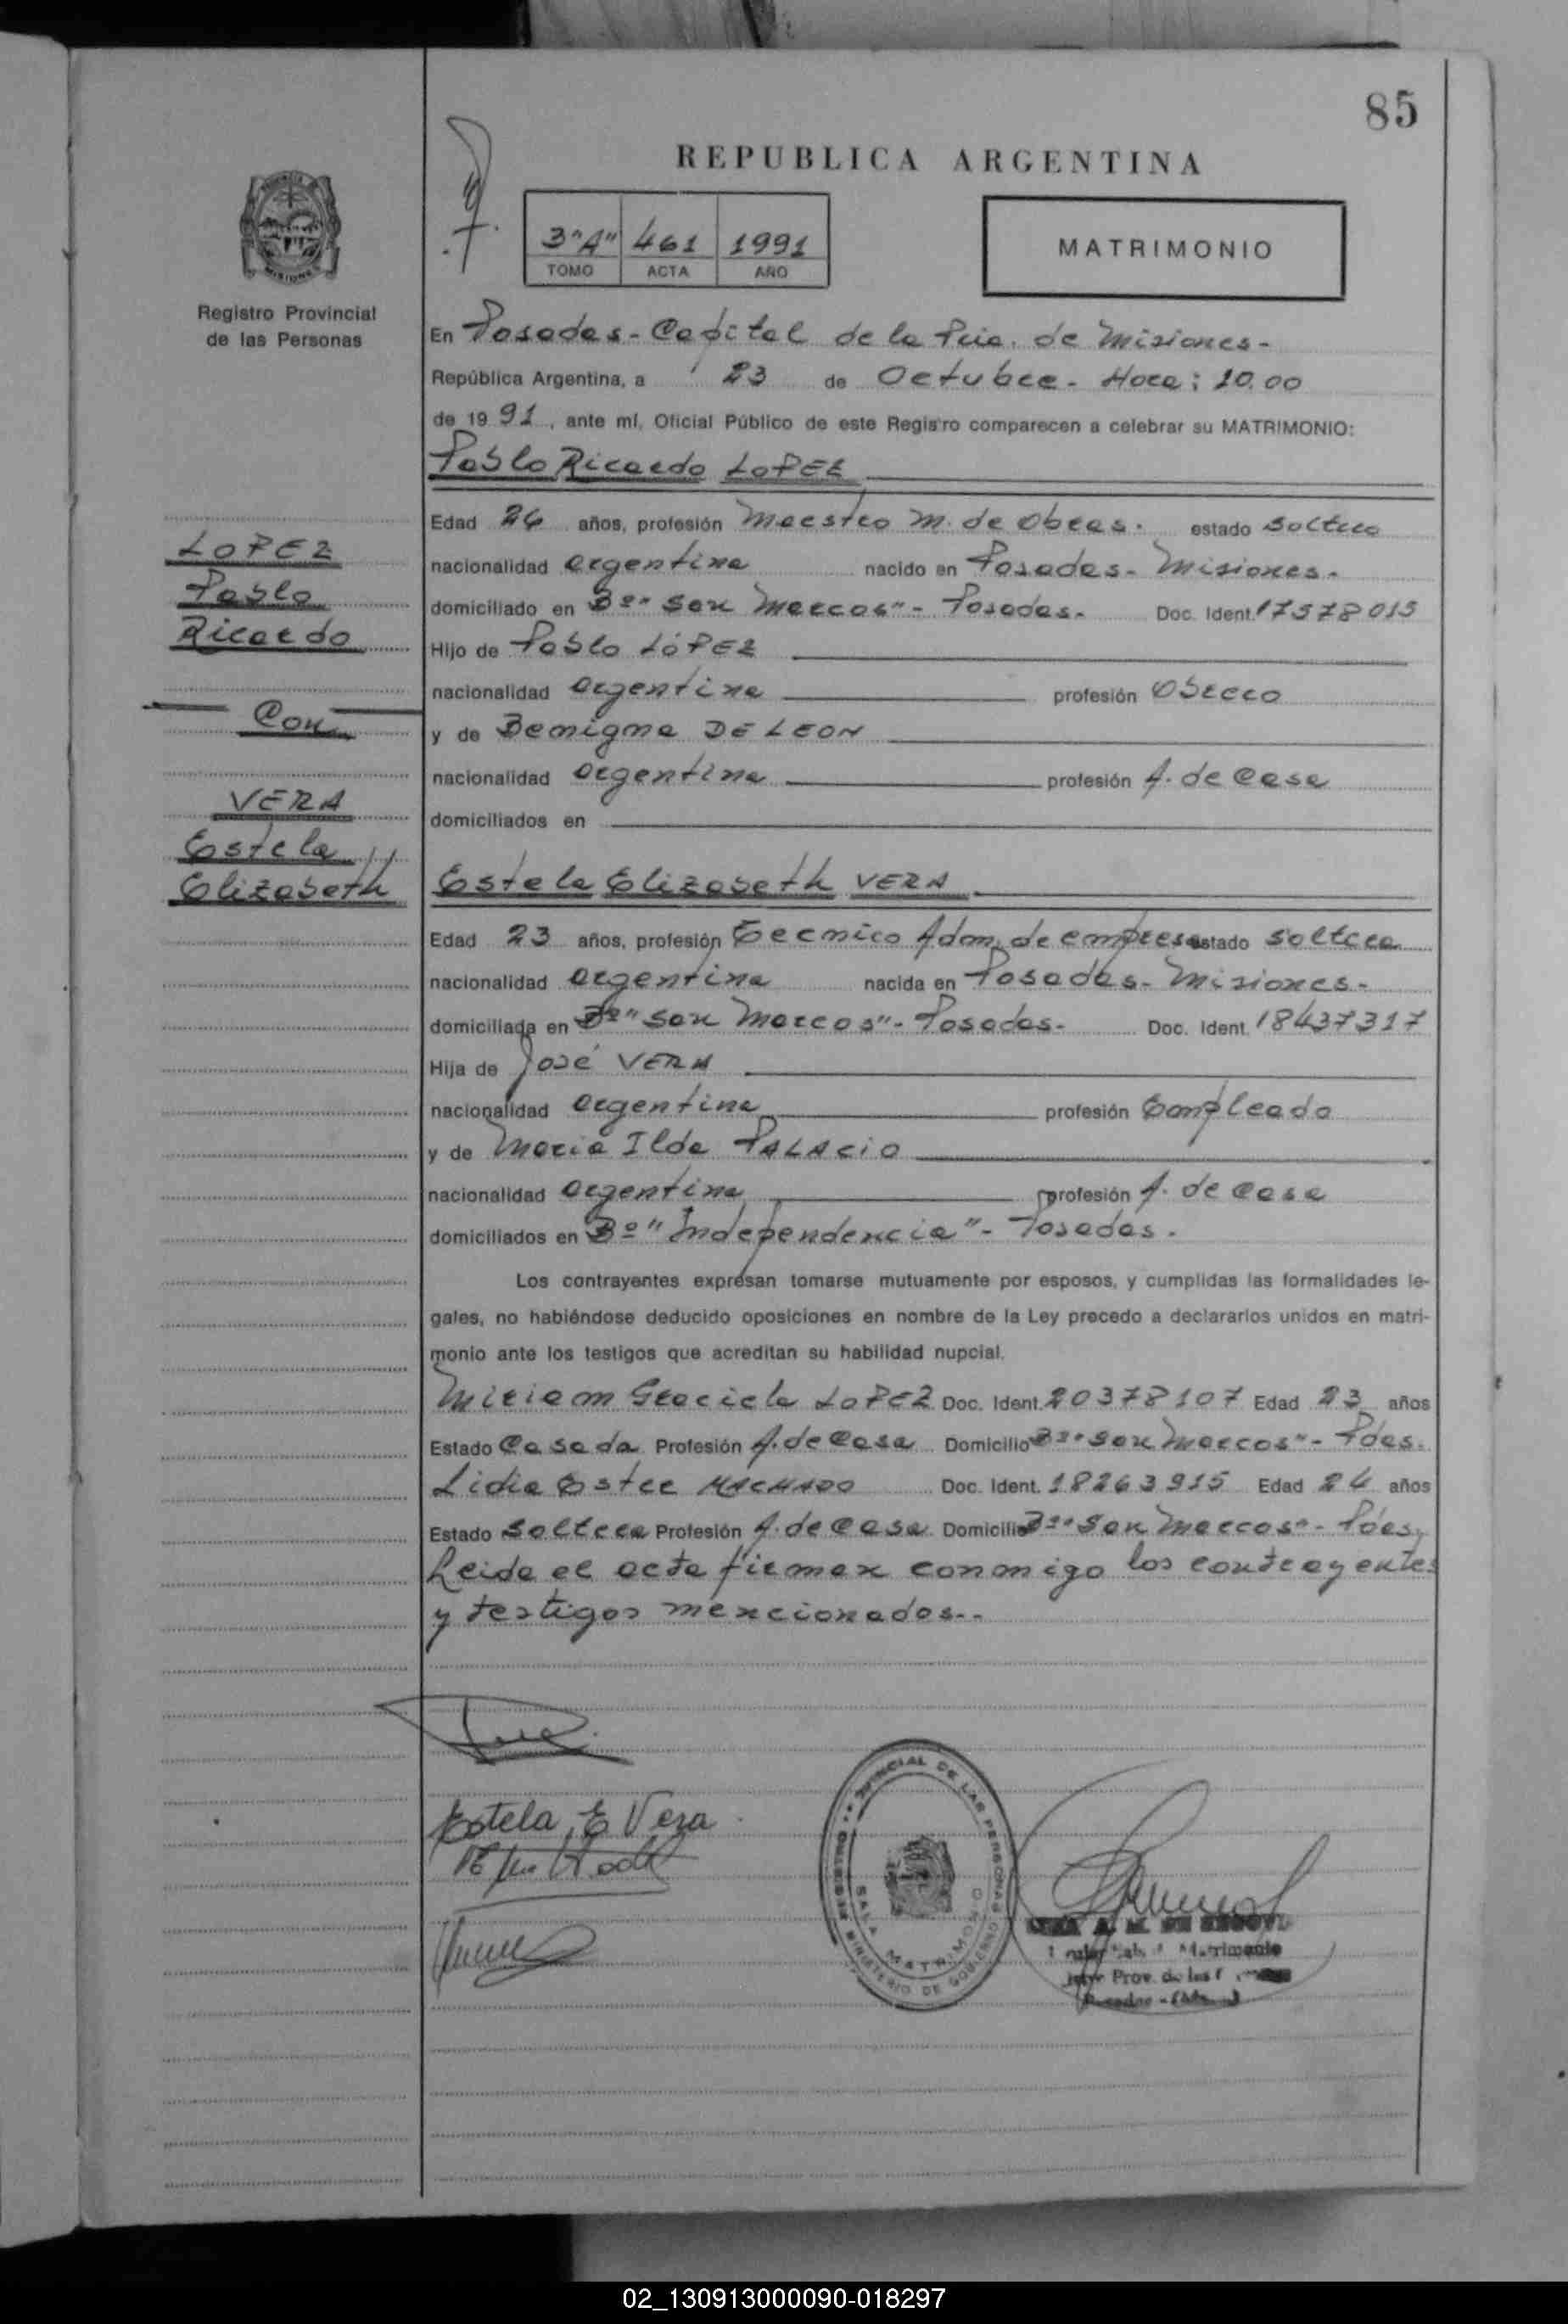 85
REPUBLICA ARGENTINA
3"A" 461 1991
TOMO ACTA AÑO
MATRIMONIO
Registro Provincial
de las Personas
En Posadas - Capital de la Pcia. de Misiones -
República Argentina, a 23 de Octubre - Hora: 10.00
de 1991, ante mí, Oficial Público de este Registro comparecen a celebrar su MATRIMONIO:
Pablo Ricardo LOPEZ
LOPEZ
Pablo
Ricardo
Con
VERA
Estela
Elizabeth
Edad 26 años, profesión Maestro M. de Obras. estado soltero
nacionalidad argentina nacido en Posadas - Misiones -
domiciliado en Bº "San Marcos" - Posadas - Doc. Ident. 17578015
Hijo de Pablo LÓPEZ
nacionalidad argentina profesión Obrero
y de Benigna DE LEON
nacionalidad argentina profesión A. de Casa
domiciliados en
Estela Elizabeth VERA
Edad 23 años, profesión Tecnico Adm. de empresa estado soltera
nacionalidad argentina nacida en Posadas - Misiones -
domiciliada en Bº "San Marcos" - Posadas - Doc. Ident. 18437317
Hija de José VERA
nacionalidad argentina profesión Empleado
y de María Ilda PALACIO
nacionalidad argentina profesión A. de Casa
domiciliados en Bº "Independencia" - Posadas.
Los contrayentes expresan tomarse mutuamente por esposos, y cumplidas las formalidades le-
gales, no habiéndose deducido oposiciones en nombre de la Ley procedo a declararlos unidos en matri-
monio ante los testigos que acreditan su habilidad nupcial.
Miriam Graciela LOPEZ Doc. Ident. 20378107 Edad 23 años
Estado Casada Profesión A. de Casa Domicilio Bº "San Marcos" - Pdas.
Lidia Ester MACHADO Doc. Ident. 18263915 Edad 24 años
Estado Soltera Profesión A. de Casa Domicilio Bº "San Marcos" - Pdas.
Leida el acta firman conmigo los contrayentes
y testigos mencionados..
Estela E Vera
PROVINCIAL DE LAS PERSONAS
SALA MATRIMONIO
MINISTERIO DE GOBIERNO
Matrimonio
Prov. de las
02_130913000090-018297